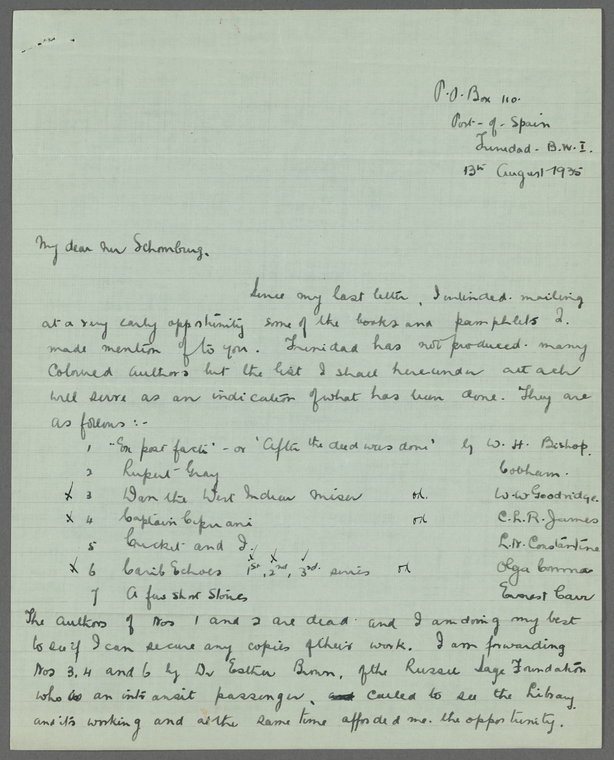 P.O. Box 110.
Port-of-Spain
Trinidad - B.W.I.
13th August 1935
My dear Mr Schomburg.
Since my last letter, I intended mailing
at a very early opportunity some of the books and pamphlets I
made mention of to you. Trinidad has not produced many
Coloured Authors but the list I shall hereunder attach
will serve as an indication of what has been done. They are
as follows:-
1 "Ex post facti" - or 'After the deed was done' by W. H. Bishop.
2 Rupert Gray Cobham.
x 3 Dan the West Indian Miser W.W Goodridge.
x 4 Captain Cipriani C.L.R. James
5 Cricket and I L.N. Constantine
x 6 Carib Echoes 1st, 2nd, 3rd series Olga Comma
7 A few short stories Ernest Carr
The Authors of Nos 1 and 2 are dead and I am doing my best
to see if I can secure any copies of their work. I am forwarding
Nos 3, 4 and 6 by Dr Esther Brown, of the Russel Sage Foundation
who as an intransit passenger, called to see the Library
and its working and at the same time afforded me the opportunity.